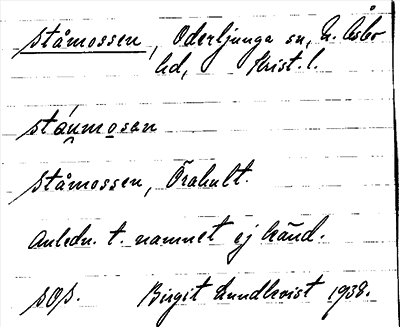 Ståmossen, Oderljunga sn, N. Åsbo
hd, Krist. l.
ståu̯mosan
Ståmossen, Örahult.
Anledn. t. namnet ej känd.
SOS. Birgit Lundkvist 1938.